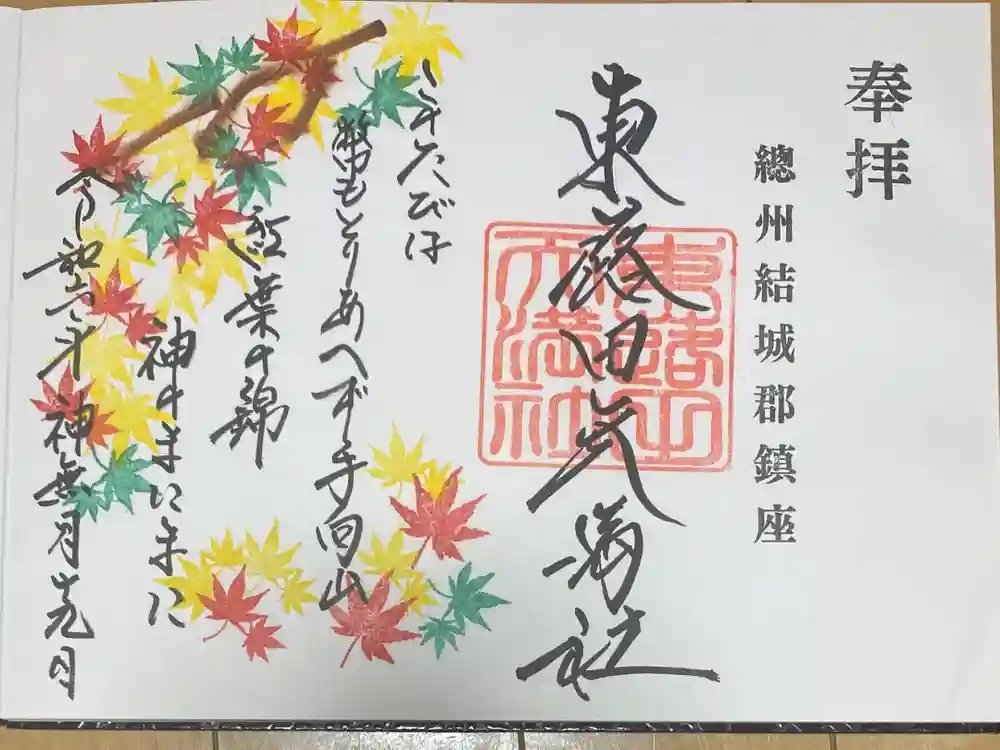 奉拝
總州結城郡鎮座
東蕗田天満社
東蕗田
天満社
このたびは
幣もとりあへず手向山
紅葉の錦
神のまにまに
令和六年 神無月